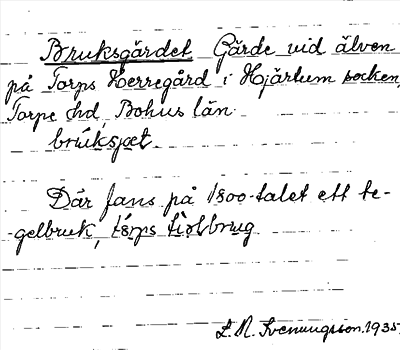 Bruksgärdet Gärde vid älven
på Torps Herregård i Hjärtum socken,
Torpe hd, Bohus län.
brúksjæt.
Där fans på 1800-talet ett te-
-gelbruk, tórps tìolbrug.
L. R. Svenungsson. 1935